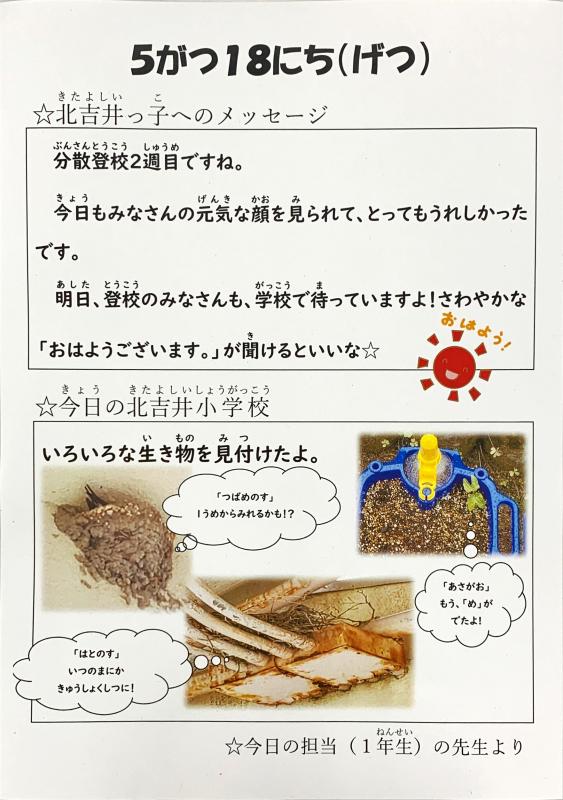 5がつ18にち(げつ)
☆北吉井っ子へのメッセージ
分散登校2週目ですね。
今日もみなさんの元気な顔を見られて、とってもうれしかった
です。
明日、登校のみなさんも、学校で待っていますよ!さわやかな
「おはようございます。」が聞けるといいな☆
おはよう!
☆今日の北吉井小学校
いろいろな生き物を見付けたよ。
「つばめのす」
1うめからみれるかも!?
「あさがお」
もう、「め」が
でたよ!
「はとのす」
いつのまにか
きゅうしょくしつに!
☆今日の担当(1年生)の先生より